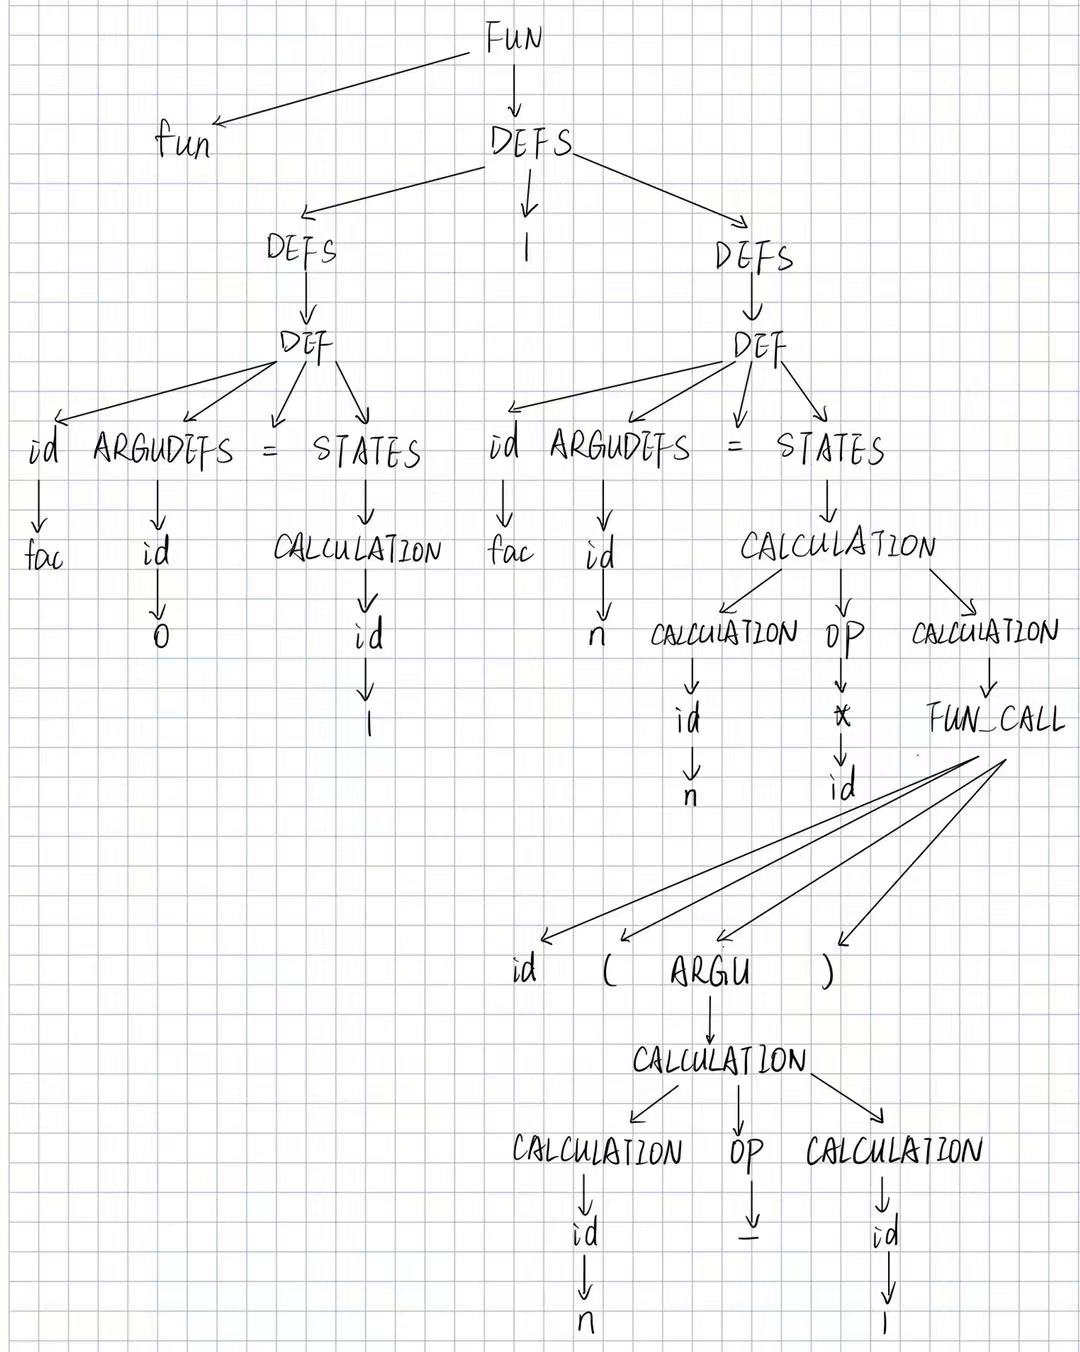 FUN
fun DEFS
DEFS | DEFS
DEF DEF
id ARGUDEFS = STATES id ARGUDEFS = STATES
fac id CALCULATION fac id CALCULATION
0 id n CALCULATION OP CALCULATION
1 id * FUN_CALL
n id
id ( ARGU )
CALCULATION
CALCULATION OP CALCULATION
id - id
n 1